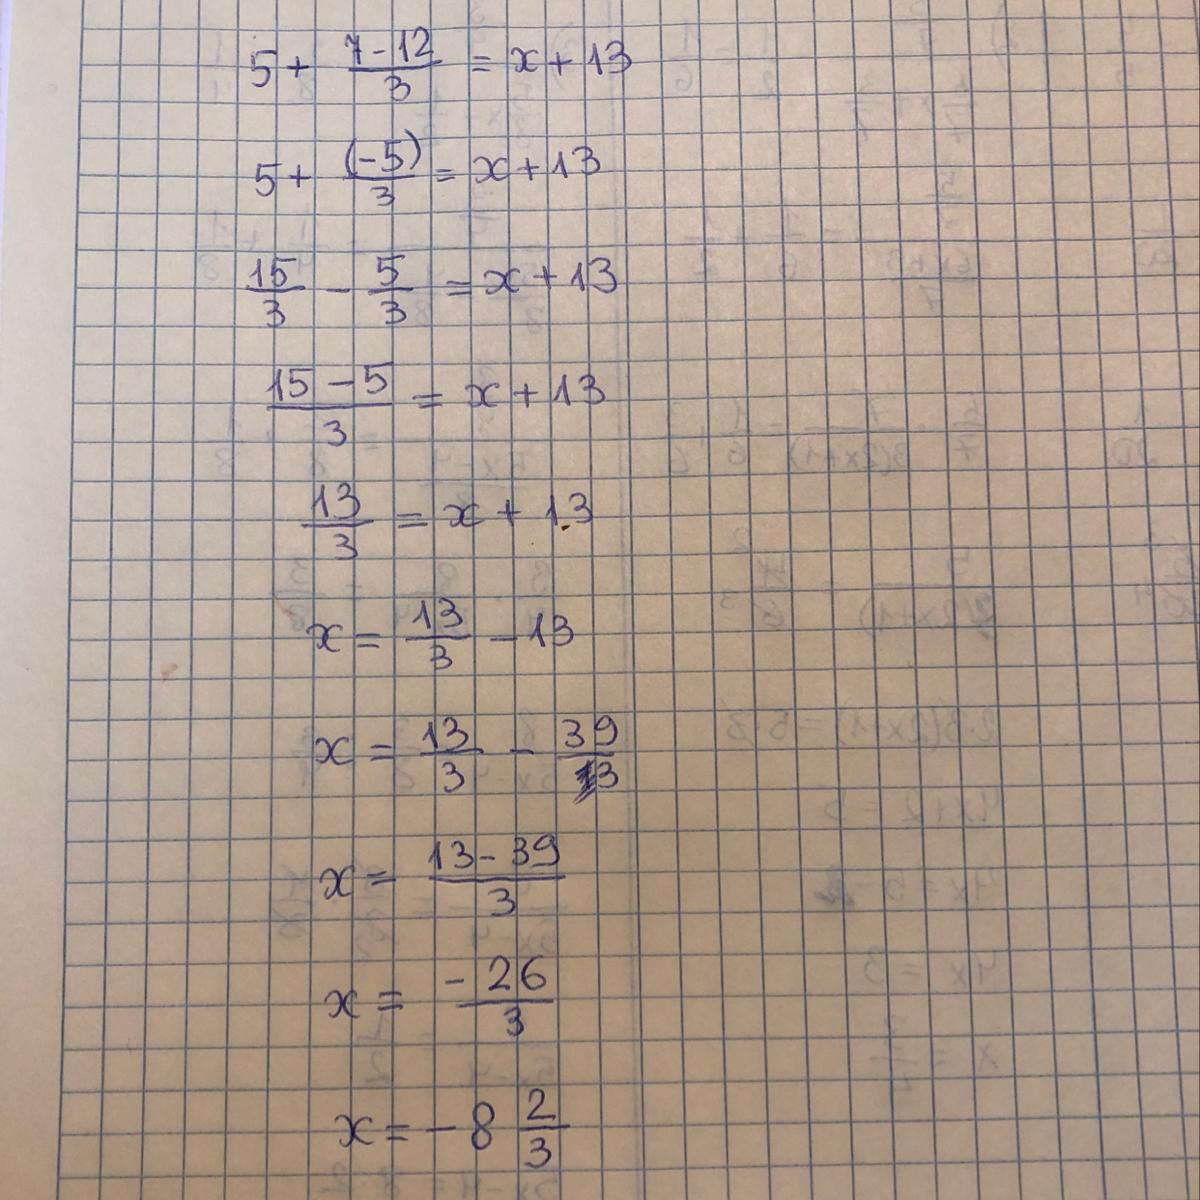 5 + (7-12)/3 = x + 13
5 + (-5)/3 = x + 13
15/3 - 5/3 = x + 13
(15 - 5)/3 = x + 13
13/3 = x + 13
x = 13/3 - 13
x = 13/3 - 39/3
x = (13 - 39)/3
x = -26/3
x = -8 2/3